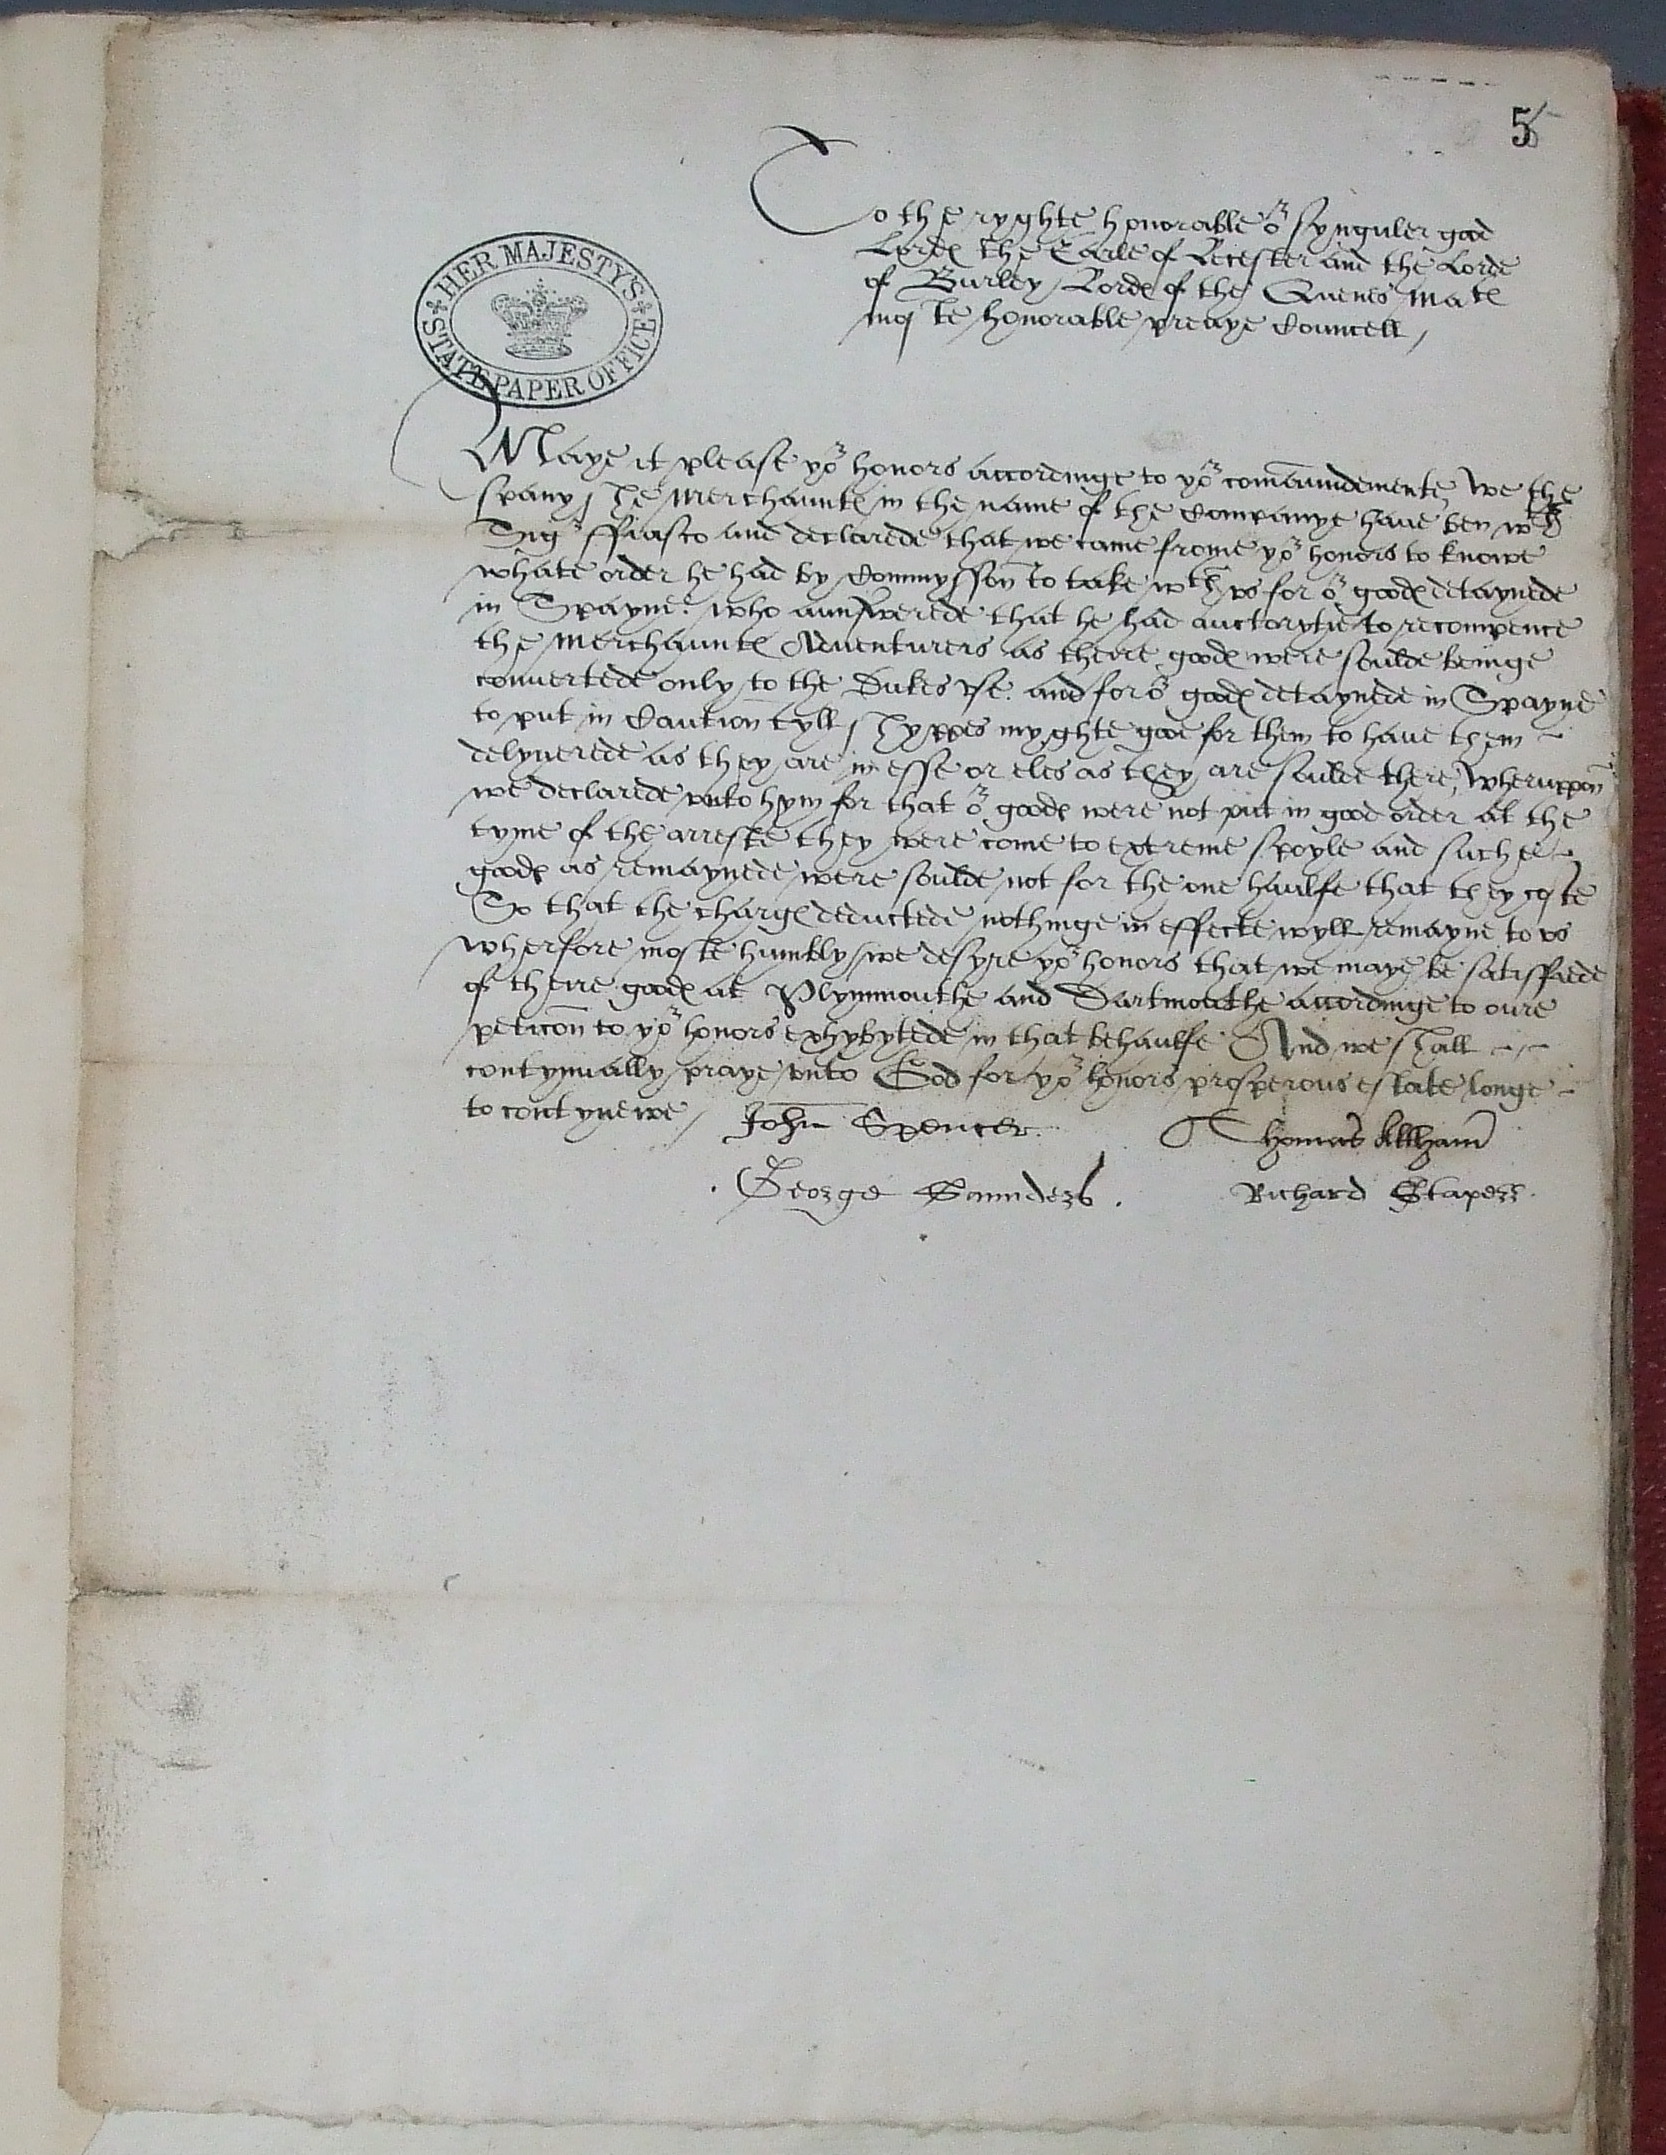 5
To the ryghte honorable or synguler good
Lordes the Earle of Leicester and the Lorde
of Burley Lordes of the Quenes Mates
moste honorable preavye Councell /
HER MAJESTY'S
STATE PAPER OFFICE
Maye it please yor honors accordinge to yor comaundemente, we the
spanyshe Merchauntes in the name of the Companye have ben wth
Sigor ffiasco and declarede that we came frome yor honors to knowe
whate order he had by Commysson to take wth vs for or goodes detaynede
in Spayne. who aunswerede that he had auctorytie to recompence
the Merchauntes Adventurers as theire goodes were soulde beinge
convertede only to the Dukes vse. and for or goodes detaynede in Spayne
to put in Caution tyll shyppes myghte goe for them to have them
delyverede as they are in esse or eles as they are soulde there, wheruppon
we declarede vnto hym for that or goodes were not put in good order at the
tyme of the arreste they were come to extreme spoyle and suche
goodes as remaynede were soulde not for the one haulfe that they coste
So that the charges deductede nothinge in effecte wyll remayne to vs
wherfore moste humbly we desyre yor honors that we maye be satisffiede
of theire goodes at Plymmouthe and Dartmouthe accordinge to oure
peticon to yor honors exhybytede in that behaulfe And we shall
contynually praye vnto God for yor honors prosperous estate longe
to contynewe / John Spencer. Thomas Allham
George Saunders. Richard Stapers.